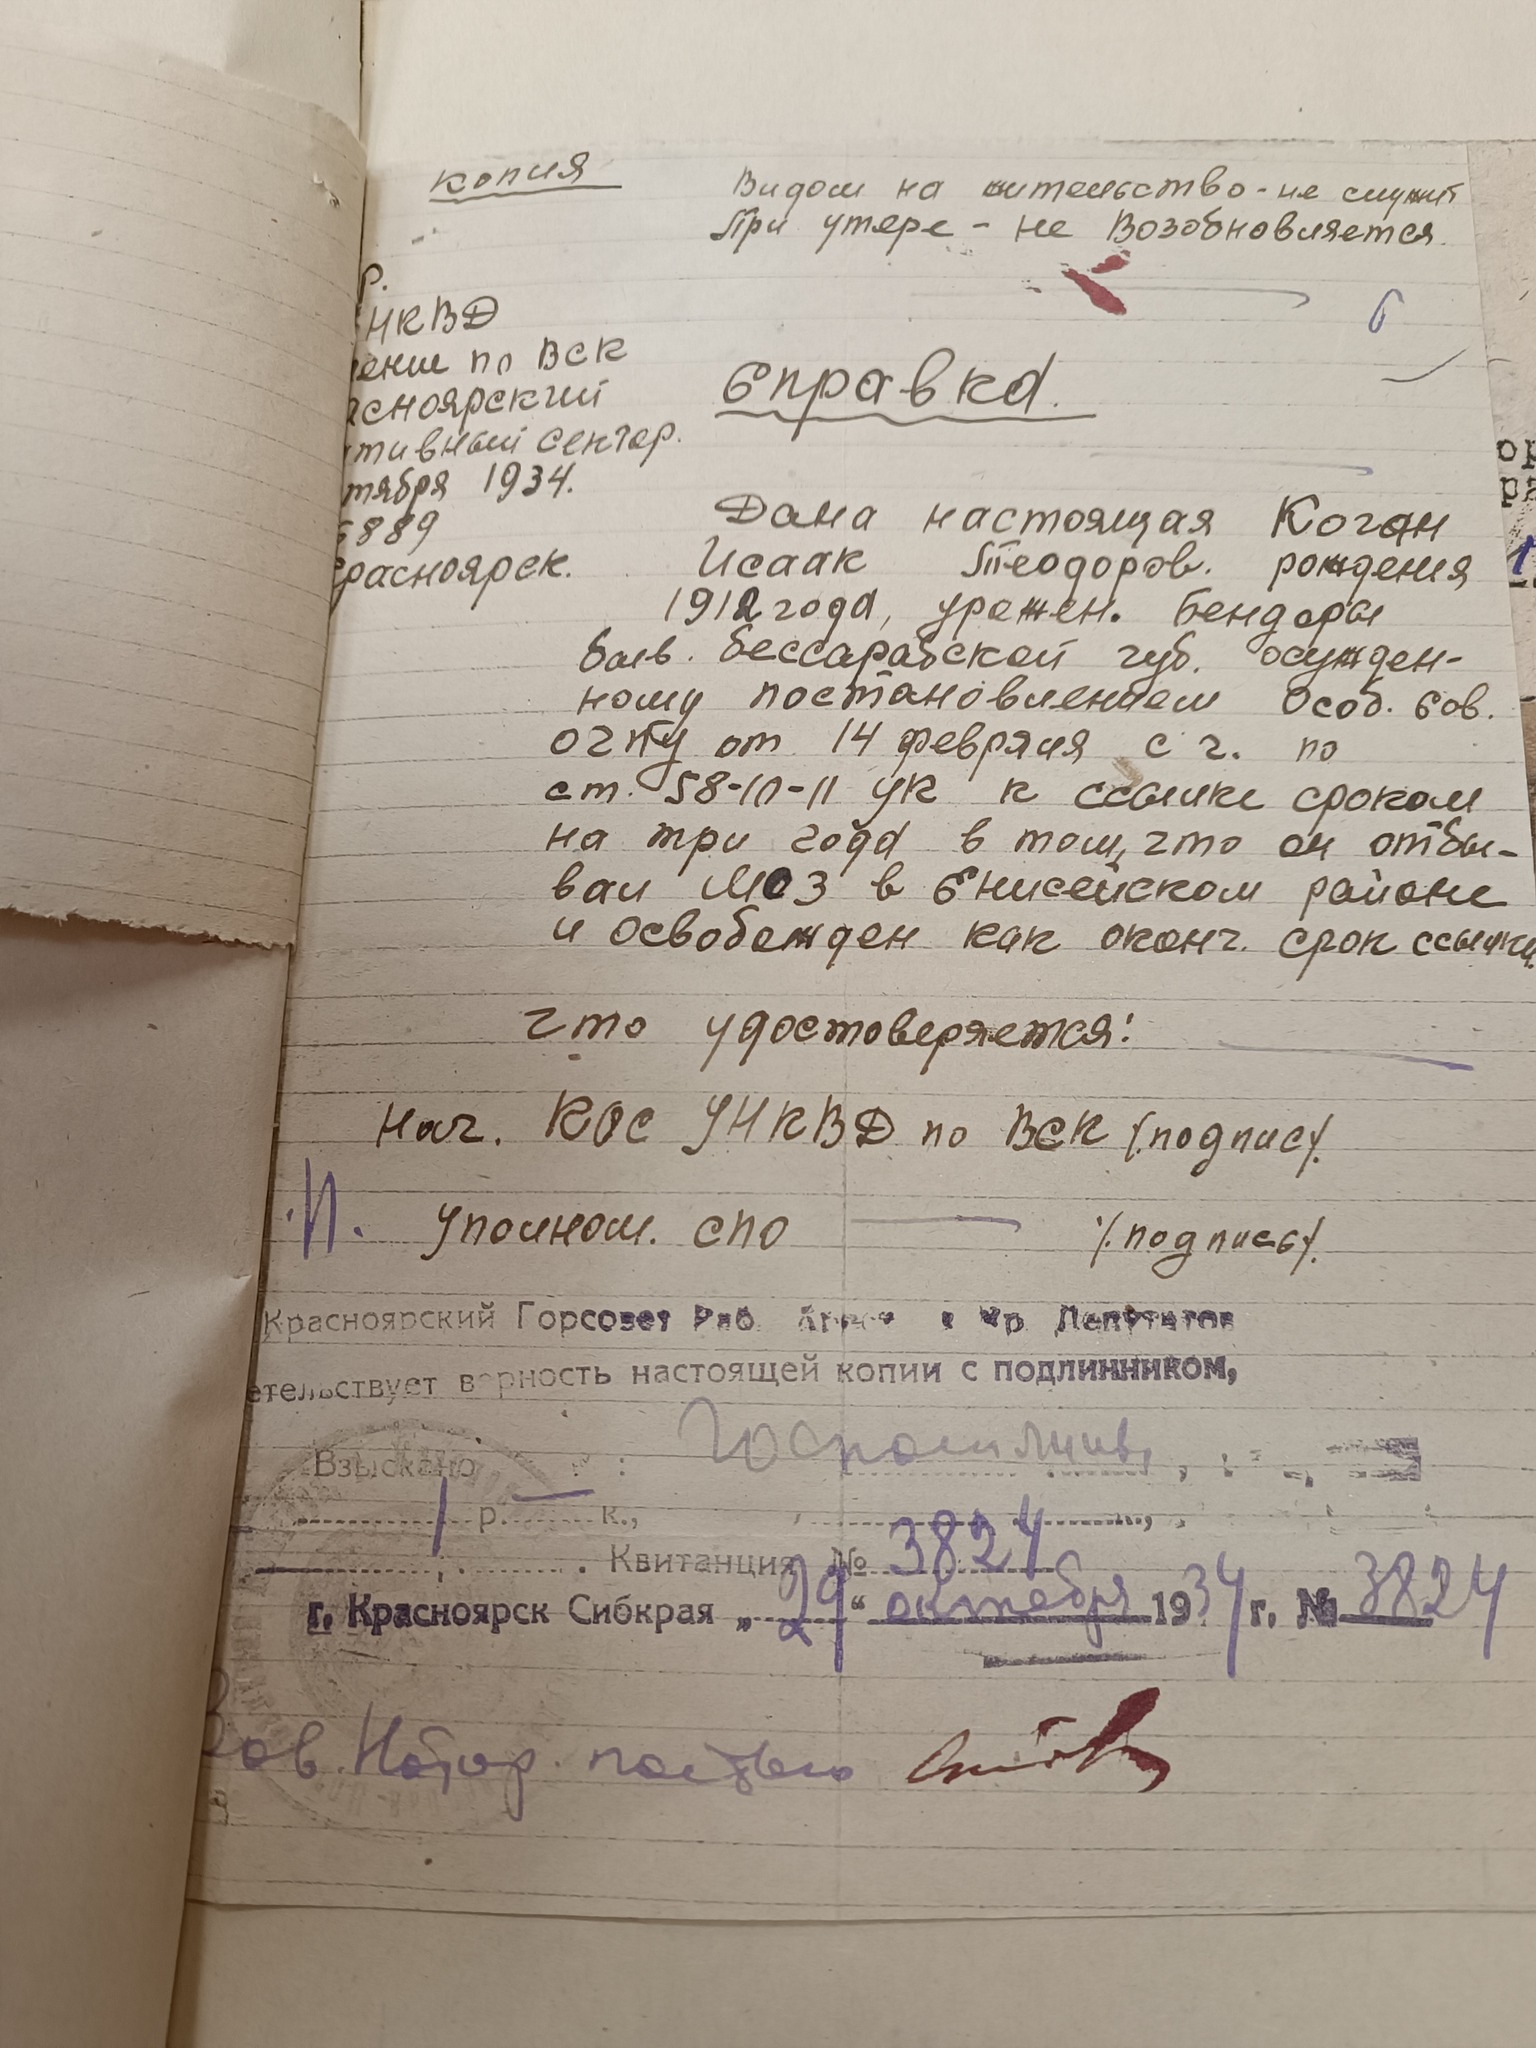 копия
Видом на жительство - не служит
При утере - не возобновляется.
р.
НКВД
ение по ВСК
асноярский
тивный сектор.
тября 1934.
6889
Красноярск.
Справка.
Дана настоящая Коган
Исаак Теодоров. рождения
1912 года, урожен. Бендеры
быв. Бессарабской губ. осужден-
ному постановлением Особ. Сов.
ОГПУ от 14 февраля с г. по
ст. 58-10-11 УК к ссылке сроком
на три года в том, что он отбы-
вал МОЗ в Енисейском районе
и освобожден как оконч. срок ссылки.
Что удостоверяется:
Нач. КОС УНКВД по ВСК /.подпис/.
.П. Уполном. СПО /.подпись/.
Красноярский Горсовет Раб. Кр. Депутатов
етельствует верность настоящей копии с подлинником,
Взыскано :
1 р. — к.,
Квитанция № 3824
г. Красноярск Сибкрая „29“ октября 1934 г. № 3824
Зав. Нотар.